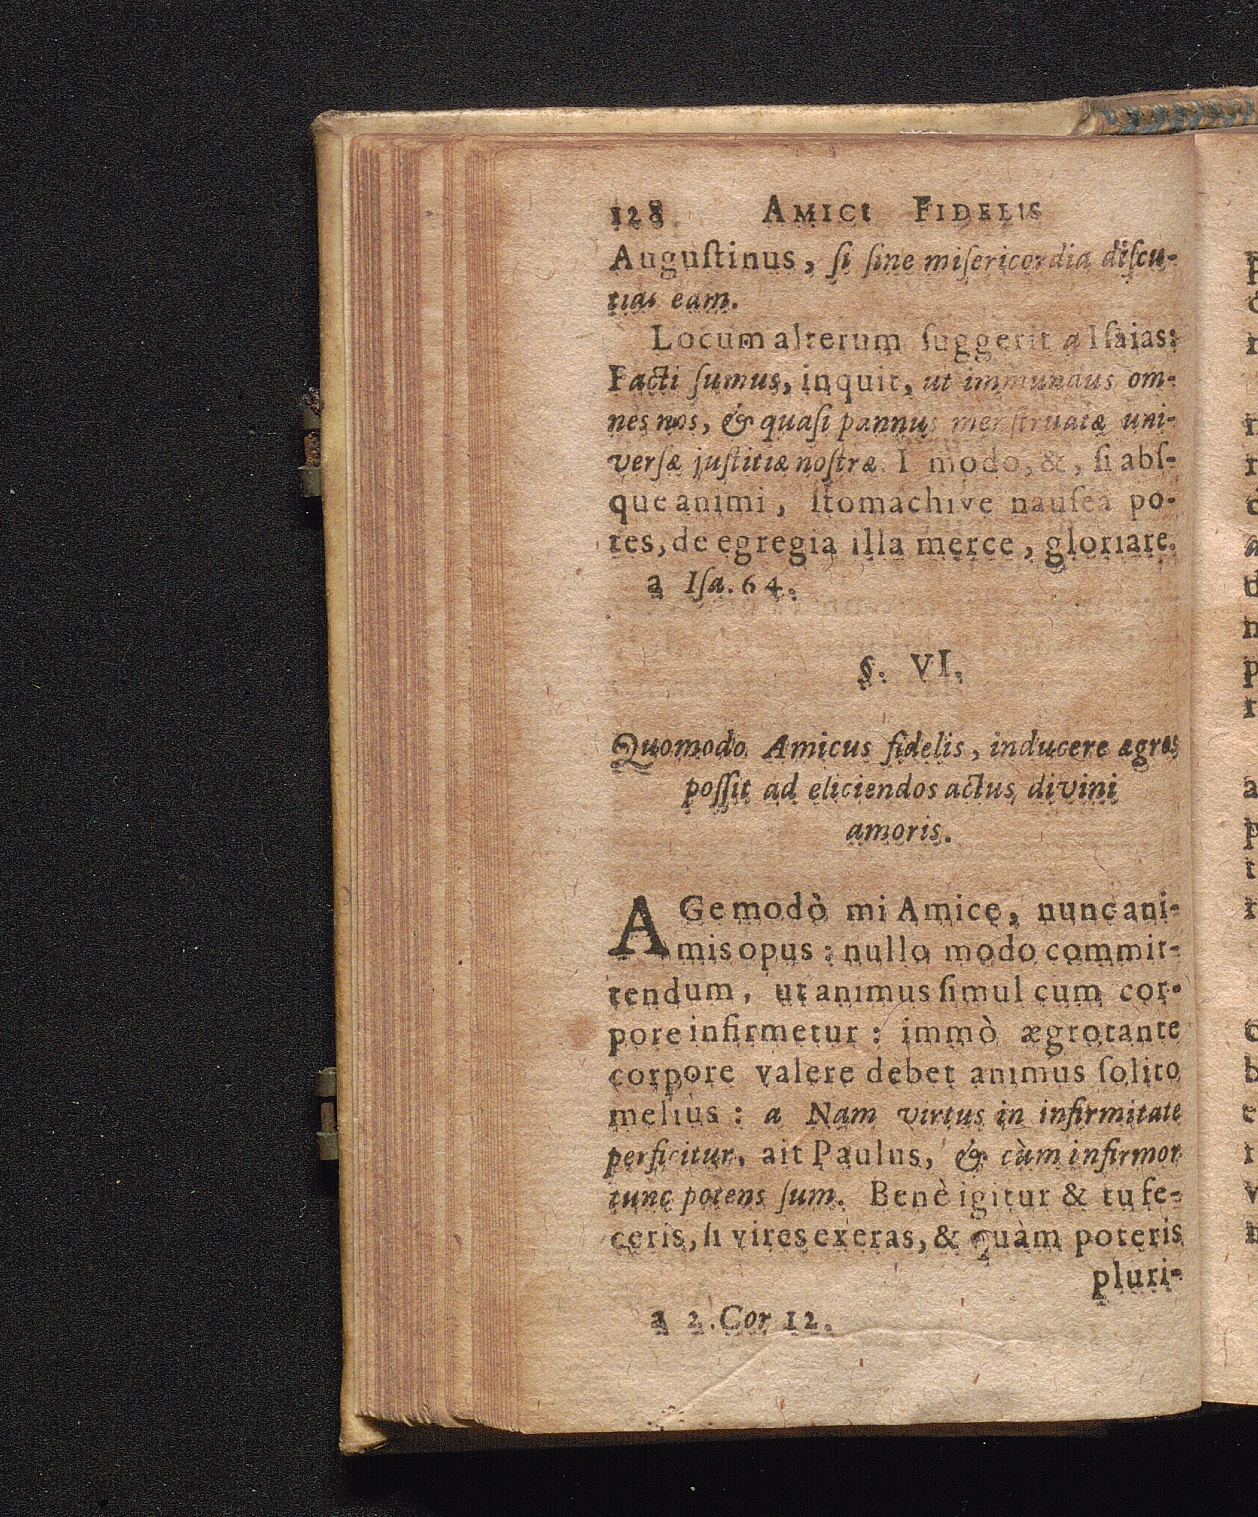 128 AMICI FIDELIS
Auguſtinus, ſi ſine miſericordia diſcu-
tias eam.
Locum alterum ſuggerit a Iſaias:
Facti ſumus, inquit, ut immundus om-
nes nos, & quaſi pannus menſtruatæ uni-
verſæ juſtitiæ noſtræ. I modo, &, ſi abſ-
que animi, ſtomachive nauſea po-
tes, de egregia illa merce, gloriare.
a Iſa. 64.
§. VI.
Quomodo Amicus fidelis, inducere ægros
poſſit ad eliciendos actus divini
amoris.
AGe modò mi Amice, nunc ani-
mis opus: nullo modo commit-
tendum, ut animus ſimul cum cor-
pore infirmetur: immò ægrotante
corpore valere debet animus ſolito
melius: a Nam virtus in infirmitate
perficitur, ait Paulus, & cùm infirmor
tunc potens ſum. Benè igitur & tu fe-
ceris, ſi vires exeras, & quàm poteris
pluri-
a 2. Cor 12.